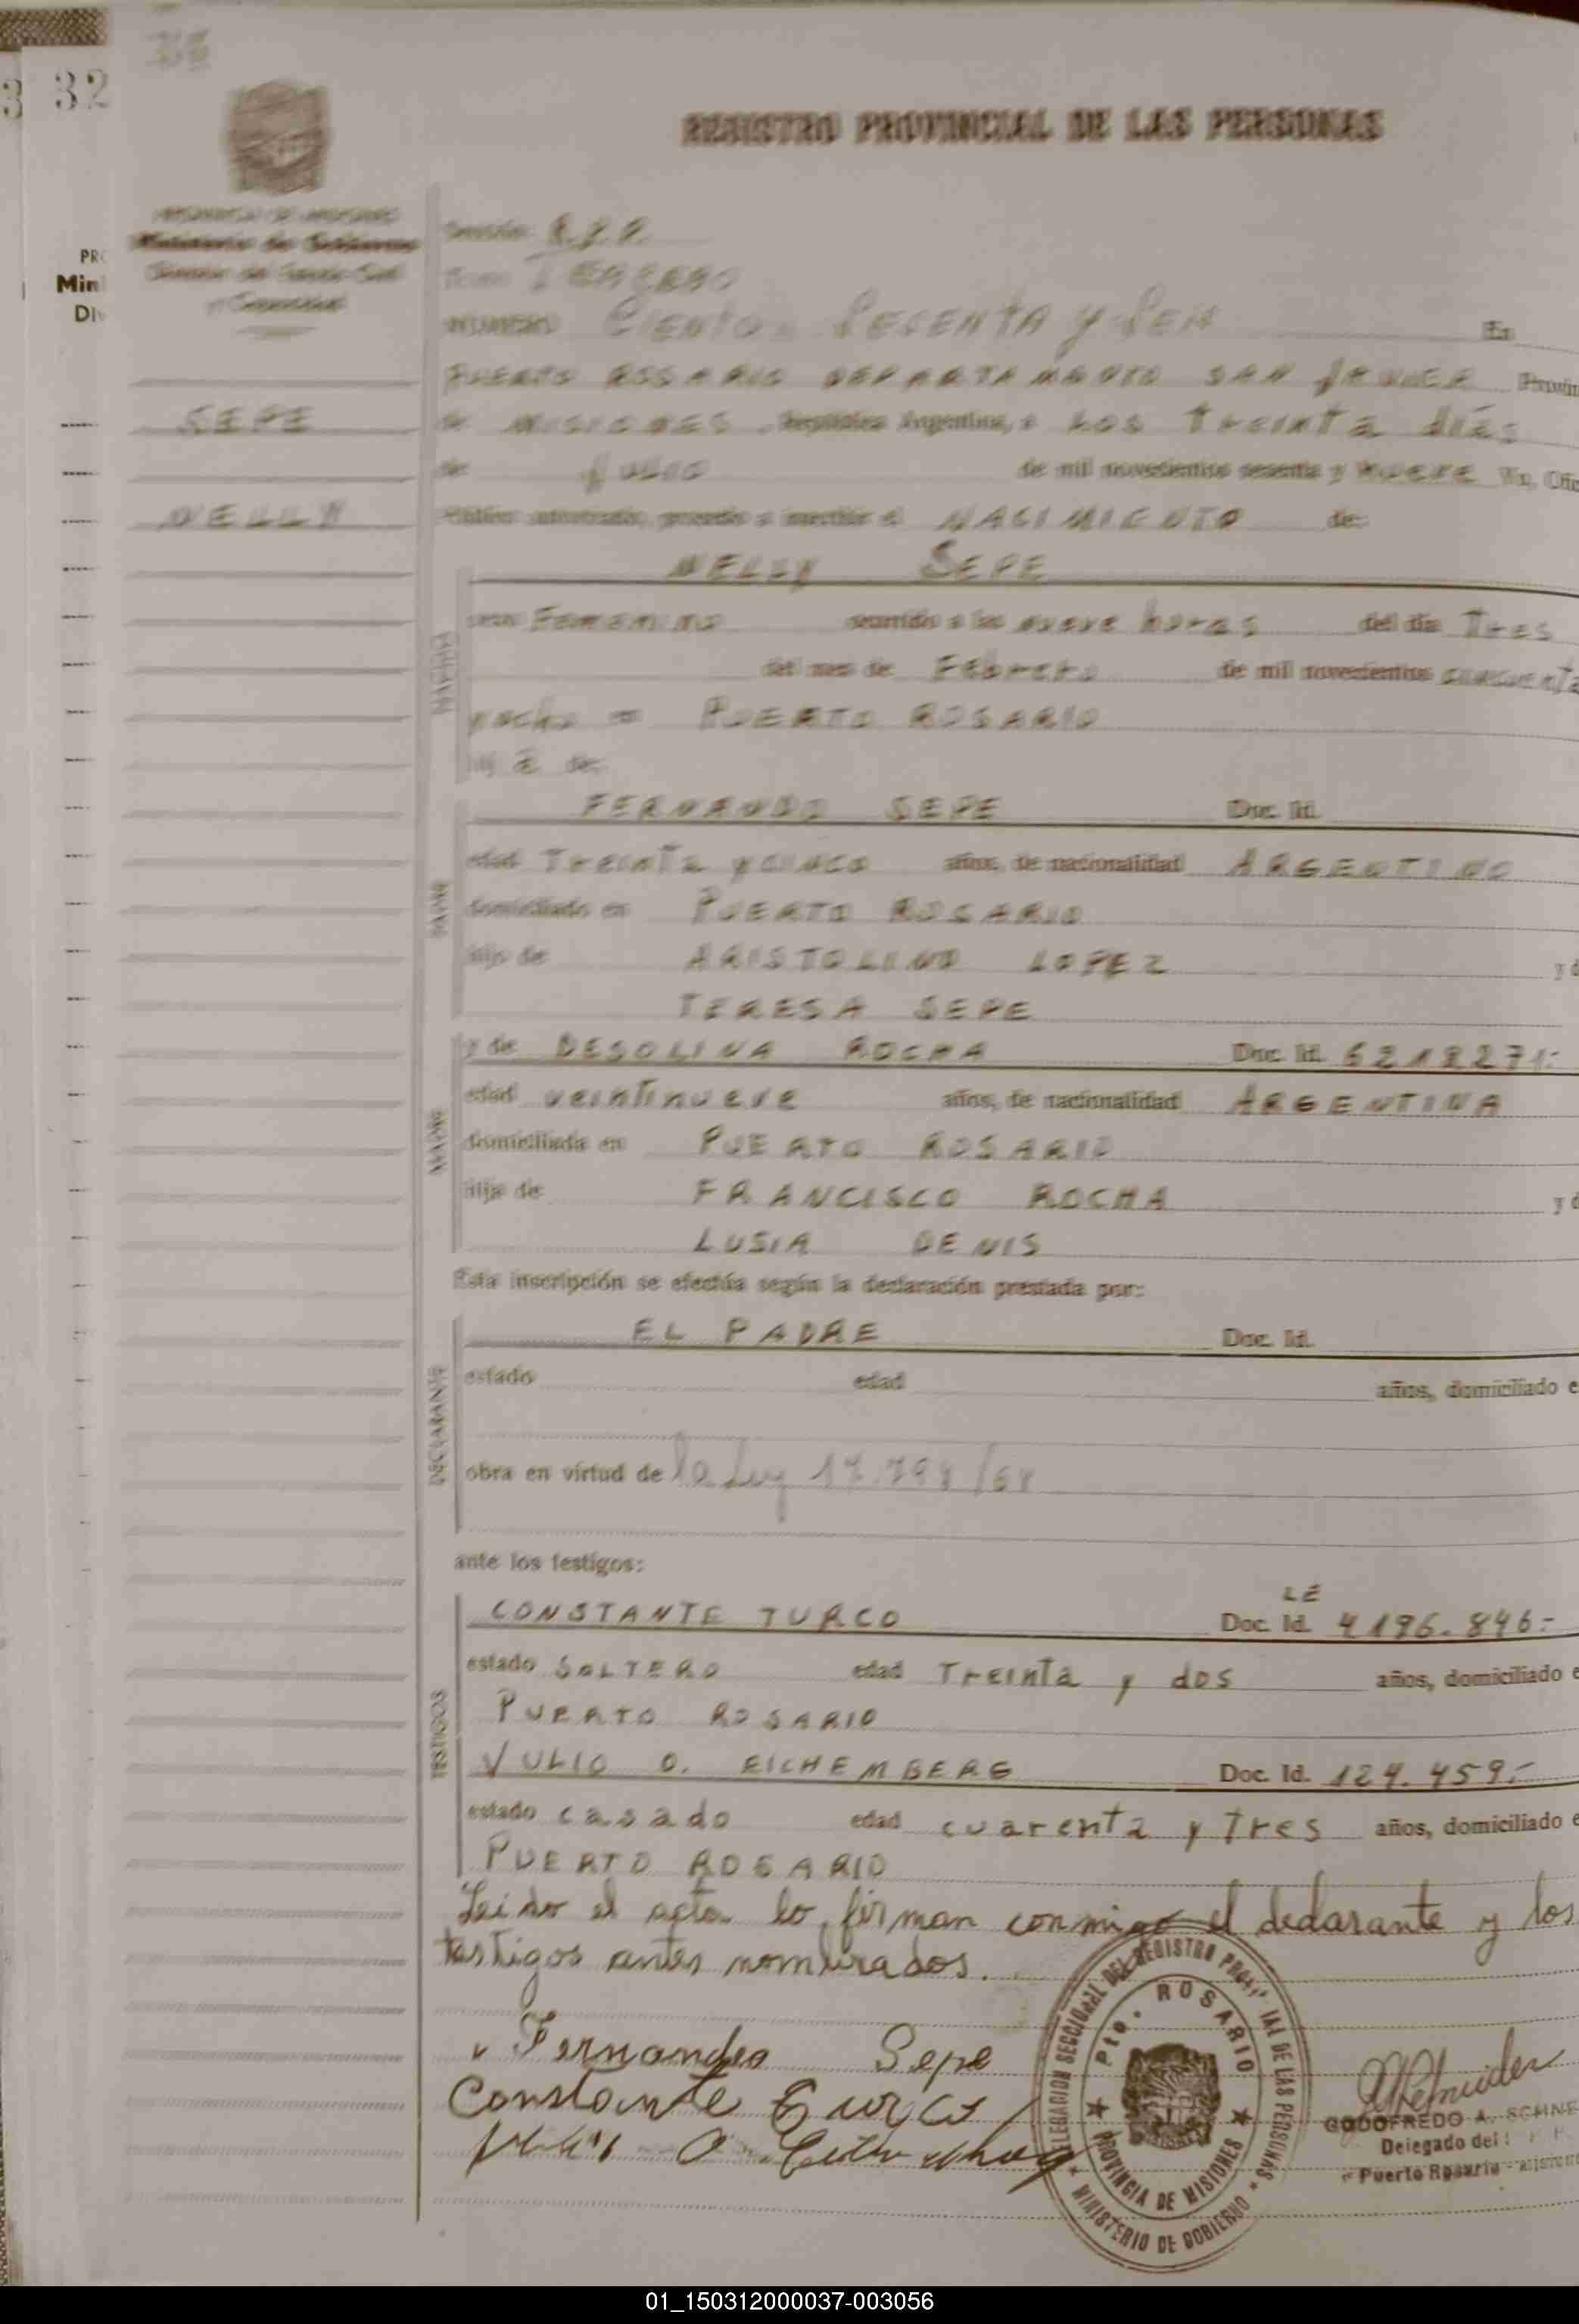 3
32
REGISTRO PROVINCIAL DE LAS PERSONAS
PROVINCIA DE MISIONES
Ministerio de Gobierno
PR
Min
Di
Sección R.P.P.
Tomo TERCERO
NUMERO CIENTO SECENTA Y SEIS En
PUERTO ROSARIO DEPARTAMENTO SAN JAVIER Provin
SEPE
de MISIONES República Argentina, a LOS treinta días
de Julio de mil novecientos sesenta y NUEVE Yo, Ofic
NELLY
Público autorizado, procedo a inscribir el NACIMIENTO de:
NELLY SEPE
sexo Femenino ocurrido a las nueve horas del día Tres
del mes de Febrero de mil novecientos cincuenta
y ocho en PUERTO ROSARIO
hij a de:
FERNANDO SEPE Doc. Id.
edad Treinta y cinco años, de nacionalidad ARGENTINO
domiciliado en PUERTO ROSARIO
hijo de ARISTOLINO LOPEZ y d
TERESA SEPE
PADRE
y de DESOLINA ROCHA Doc. Id. 6218271:-
edad veintinueve años, de nacionalidad ARGENTINA
domiciliada en PUERTO ROSARIO
hija de FRANCISCO ROCHA y d
LUSIA DENIS
MADRE
Esta inscripción se efectúa según la declaración prestada por:
EL PADRE Doc. Id.
estado edad años, domiciliado e
DECLARANTE
obra en virtud de la Ley
ante los testigos:
LE
CONSTANTE TURCO Doc. Id. 4196.846:-
estado SOLTERO edad Treinta y dos años, domiciliado e
PUERTO ROSARIO
TESTIGOS
VULIO O. EICHEMBERG Doc. Id. 124.459:-
estado casado edad cuarenta y Tres años, domiciliado e
PUERTO ROSARIO
Leido el acta lo firman conmigo el declarante y los
testigos antes nombrados.
DELEGACION SECCIONAL DEL REGISTRO PROVINCIAL DE LAS PERSONAS
Pto. ROSARIO
PROVINCIA DE MISIONES
MINISTERIO DE GOBIERNO
Fernandes Sepe
Constante Turco
GODOFREDO A. SCHNE
Delegado del
Puerto Rosario - Misiones
01_150312000037-003056